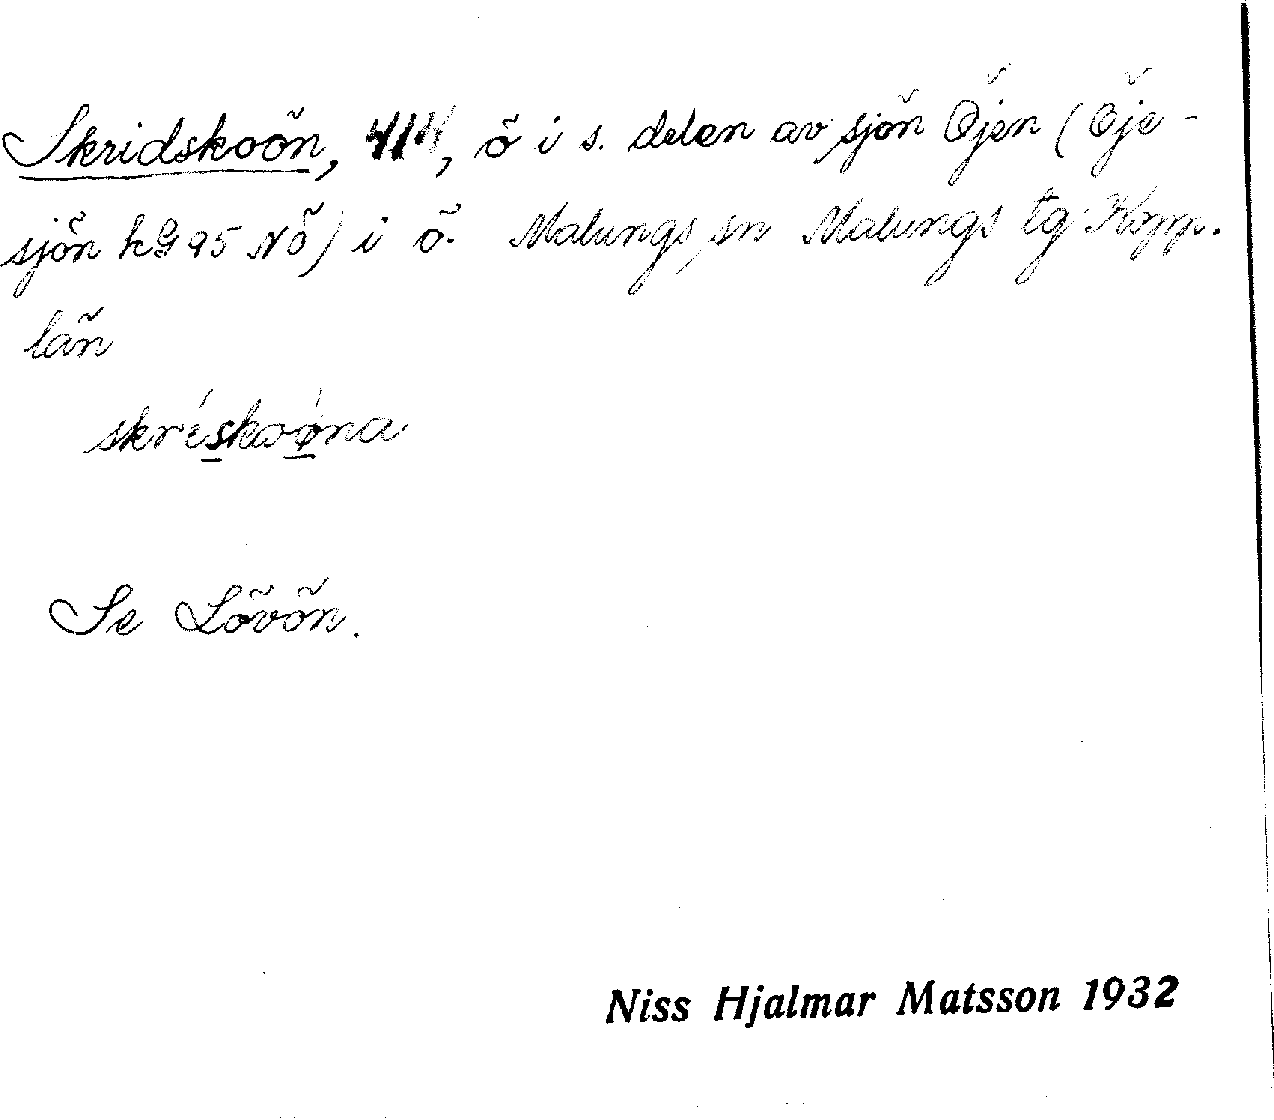 Skridskoön, 414, ö i s. delen av sjön Öjen (Öje-
sjön kG 95 NÖ) i ö. Malungs sn Malungs tg Kopp.
län
skréskoǿna
Se Lövön.
Niss Hjalmar Matsson 1932